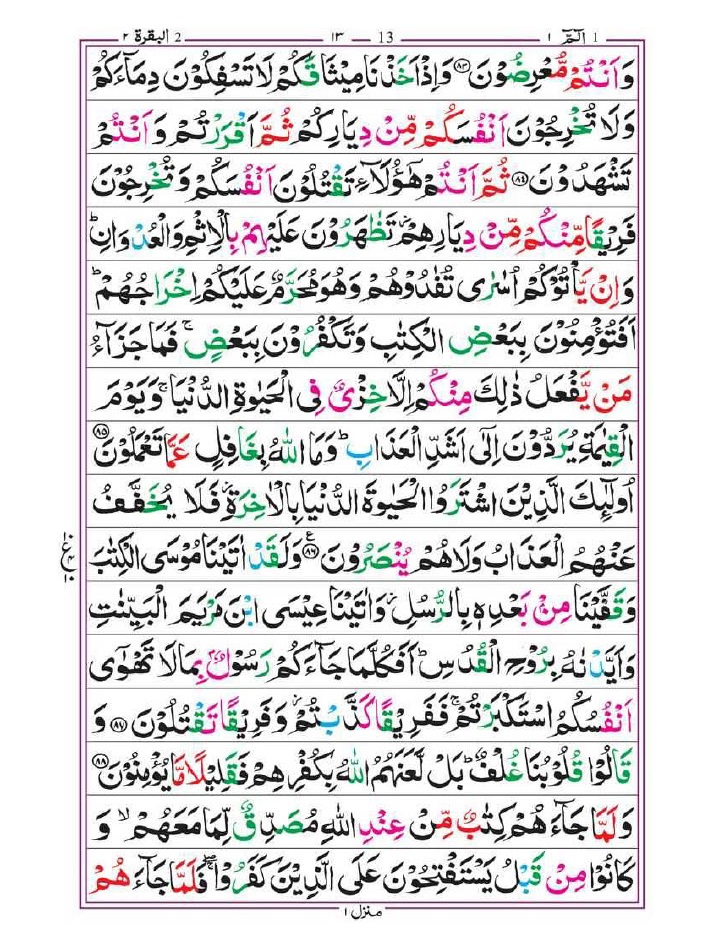 البقرة ٢ 2 ١٣ — 13 الٓمّٓ ١ 1
وَاَنْتُمْ مُّعْرِضُوْنَ ﴿۸۳﴾ وَاِذْ اَخَذْنَا مِيْثَاقَكُمْ لَا تَسْفِكُوْنَ دِمَآءَكُمْ
وَلَا تُخْرِجُوْنَ اَنْفُسَكُمْ مِّنْ دِيَارِكُمْ ثُمَّ اَقْرَرْتُمْ وَاَنْتُمْ
تَشْهَدُوْنَ ﴿۸۴﴾ ثُمَّ اَنْتُمْ هٰٓؤُلَآءِ تَقْتُلُوْنَ اَنْفُسَكُمْ وَتُخْرِجُوْنَ
فَرِيْقًا مِّنْكُمْ مِّنْ دِيَارِهِمْ ز تَظٰهَرُوْنَ عَلَيْهِمْ بِالْاِثْمِ وَالْعُدْوَانِ ؕ
وَاِنْ يَّاْتُوْكُمْ اُسٰرٰى تُفٰدُوْهُمْ وَهُوَ مُحَرَّمٌ عَلَيْكُمْ اِخْرَاجُهُمْ ؕ
اَفَتُؤْمِنُوْنَ بِبَعْضِ الْكِتٰبِ وَتَكْفُرُوْنَ بِبَعْضٍ ۚ فَمَا جَزَآءُ
مَنْ يَّفْعَلُ ذٰلِكَ مِنْكُمْ اِلَّا خِزْىٌ فِى الْحَيٰوةِ الدُّنْيَا ۚ وَيَوْمَ
الْقِيٰمَةِ يُرَدُّوْنَ اِلٰٓى اَشَدِّ الْعَذَابِ ؕ وَمَا اللّٰهُ بِغَافِلٍ عَمَّا تَعْمَلُوْنَ ﴿۸۵﴾
اُولٰٓئِكَ الَّذِيْنَ اشْتَرَوُا الْحَيٰوةَ الدُّنْيَا بِالْاٰخِرَةِ ز فَلَا يُخَفَّفُ
عَنْهُمُ الْعَذَابُ وَلَا هُمْ يُنْصَرُوْنَ ﴿۸۶﴾ ع وَلَقَدْ اٰتَيْنَا مُوْسَى الْكِتٰبَ
وَقَفَّيْنَا مِنْۢ بَعْدِهٖ بِالرُّسُلِ ز وَاٰتَيْنَا عِيْسَى ابْنَ مَرْيَمَ الْبَيِّنٰتِ
وَاَيَّدْنٰهُ بِرُوْحِ الْقُدُسِ ؕ اَفَكُلَّمَا جَآءَكُمْ رَسُوْلٌۢ بِمَا لَا تَهْوٰٓى
اَنْفُسُكُمُ اسْتَكْبَرْتُمْ ۚ فَفَرِيْقًا كَذَّبْتُمْ ز وَفَرِيْقًا تَقْتُلُوْنَ ﴿۸۷﴾ وَ
قَالُوْا قُلُوْبُنَا غُلْفٌ ؕ بَلْ لَّعَنَهُمُ اللّٰهُ بِكُفْرِهِمْ فَقَلِيْلًا مَّا يُؤْمِنُوْنَ ﴿۸۸﴾
وَلَمَّا جَآءَهُمْ كِتٰبٌ مِّنْ عِنْدِ اللّٰهِ مُصَدِّقٌ لِّمَا مَعَهُمْ ۙ وَ
كَانُوْا مِنْ قَبْلُ يَسْتَفْتِحُوْنَ عَلَى الَّذِيْنَ كَفَرُوْا ۚ فَلَمَّا جَآءَهُمْ
منزل ١